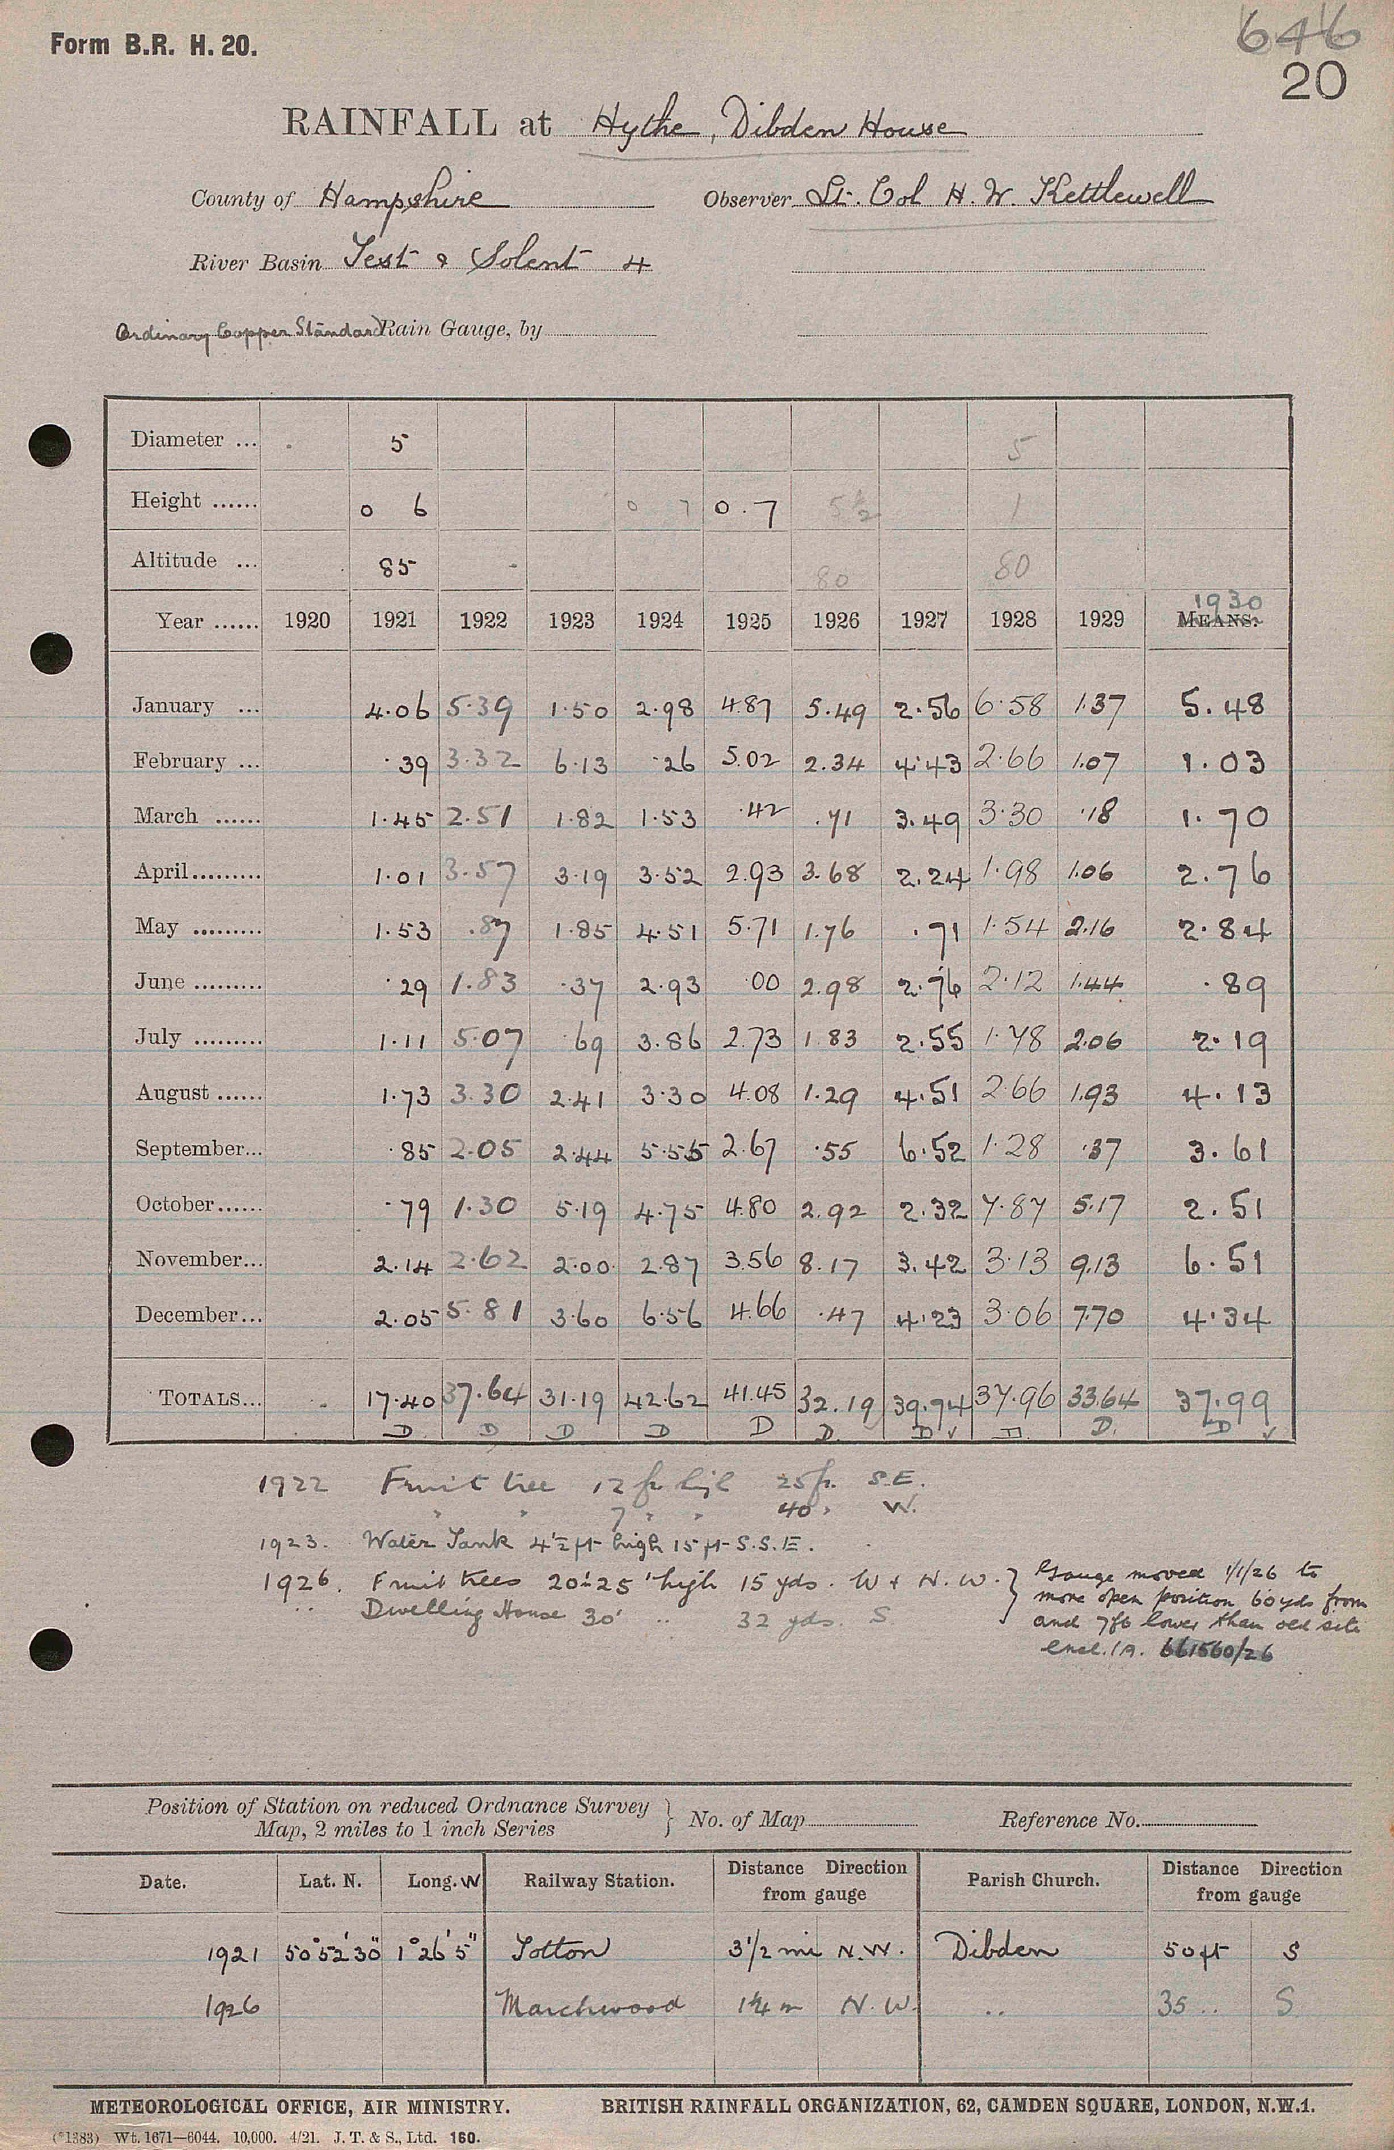 Form B.R. H. 20.
646
20
RAINFALL at Hythe, Dibden House
County of Hampshire Observer Lt. Col H. W. Kettlewell
River Basin Test & Solent 4
Ordinary Copper Standard Rain Gauge, by
Diameter ... 5 5
Height ...... 0 6 0 7 0.7 5½ 1
Altitude ... 85 80 80
1930
Year ...... 1920 1921 1922 1923 1924 1925 1926 1927 1928 1929 MEANS.
January ... 4.06 5.39 1.50 2.98 4.87 5.49 2.56 6.58 1.37 5.48
February ... .39 3.32 6.13 .26 5.02 2.34 4.43 2.66 1.07 1.03
March ...... 1.45 2.51 1.82 1.53 .42 .71 3.49 3.30 .18 1.70
April......... 1.01 3.57 3.19 3.52 2.93 3.68 2.24 1.98 1.06 2.76
May ......... 1.53 .87 1.85 4.51 5.71 1.76 .71 1.54 2.16 2.84
June ......... .29 1.83 .37 2.93 .00 2.98 2.76 2.12 1.44 .89
July ......... 1.11 5.07 .69 3.86 2.73 1.83 2.55 1.78 2.06 2.19
August ...... 1.73 3.30 2.41 3.30 4.08 1.29 4.51 2.66 1.93 4.13
September... .85 2.05 2.44 5.55 2.67 .55 6.52 1.28 .37 3.61
October...... .79 1.30 5.19 4.75 4.80 2.92 2.32 7.87 5.17 2.51
November... 2.14 2.62 2.00 2.87 3.56 8.17 3.42 3.13 9.13 6.51
December... 2.05 5.81 3.60 6.56 4.66 .47 4.23 3.06 7.70 4.34
TOTALS... 17.40 37.64 31.19 42.62 41.45 32.19 39.74 37.96 33.64 37.99
D D D D D D. D ✓ D. D. D ✓
1922 Fruit tree 12 ft high 25 ft. S.E.
" " 7 " " 40 " W.
1923. Water Tank 4½ ft high 15 ft S.S.E.
1926. Fruit trees 20-25' high 15 yds. W + N.W.
" Dwelling House 30' " 32 yds. S.
} Gauge moved 1/1/26 to
more open position 60 yds from
and 7ft lower than old site
encl. 1A. 661560/26
Position of Station on reduced Ordnance Survey
Map, 2 miles to 1 inch Series } No. of Map Reference No.
Date. Lat. N. Long. W Railway Station. Distance Direction from gauge Parish Church. Distance Direction from gauge
1921 50°52'30" 1°26'5" Totton 3½ mi N.W. Dibden 50 ft S
1926 Marchwood 1¼ m N.W. " 35 " S
METEOROLOGICAL OFFICE, AIR MINISTRY. BRITISH RAINFALL ORGANIZATION, 62, CAMDEN SQUARE, LONDON, N.W.1.
(*1383) Wt. 1671—6044. 10,000. 4/21. J. T. & S., Ltd. 160.